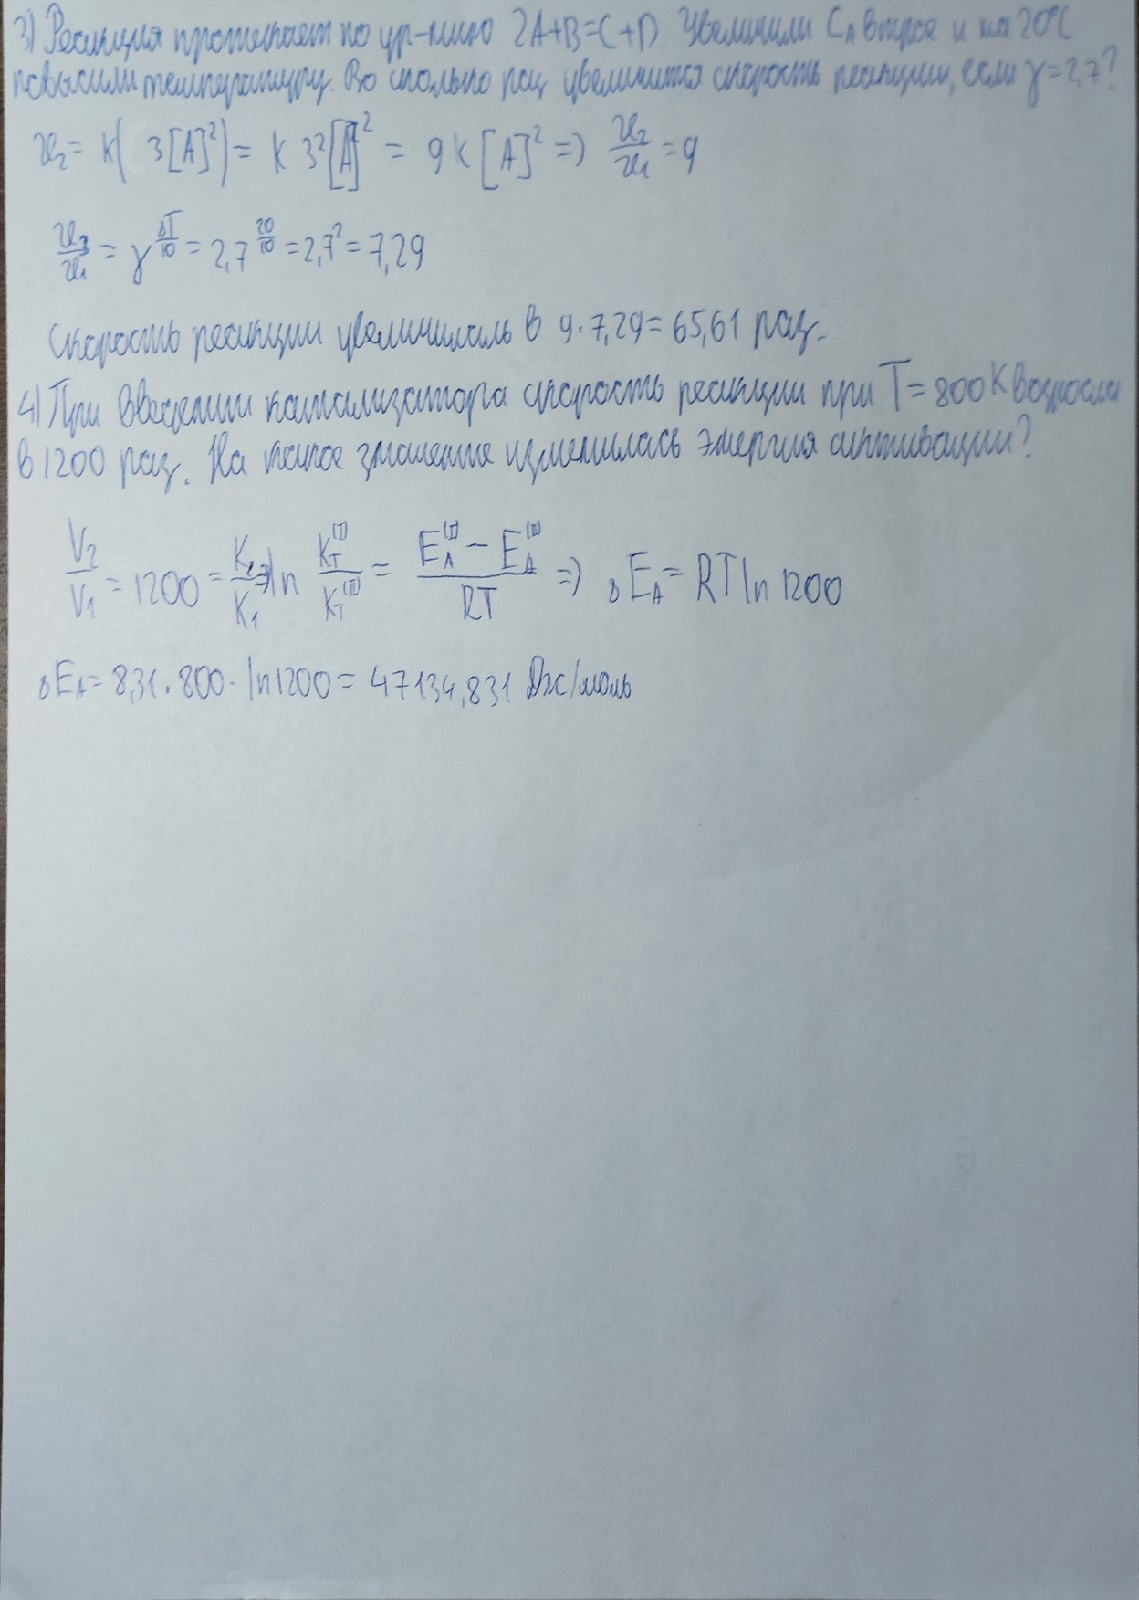 3) Реакция протекает по ур-нию 2A+B=C+D Увеличили C_A втрое и на 20°C
повысили температуру. Во сколько раз увеличится скорость реакции, если γ=2,7?
υ₂ = K( 3[A]²) = K 3²[A]² = 9K[A]² => υ₂/υ₁ = 9
υ₃/υ₁ = γ^(ΔT/10) = 2,7^(20/10) = 2,7² = 7,29
Скорость реакции увеличилась в 9·7,29=65,61 раз.
4) При введении катализатора скорость реакции при T=800K возросла
в 1200 раз. На какое значение изменилась энергия активации?
V₂/V₁ = 1200 = K₂/K₁ => ln K_T^(I)/K_T^(II) = (E_A^(I) − E_A^(II))/RT => ΔE_A = RT ln 1200
ΔE_A = 8,31·800·ln1200 = 47134,831 Дж/моль